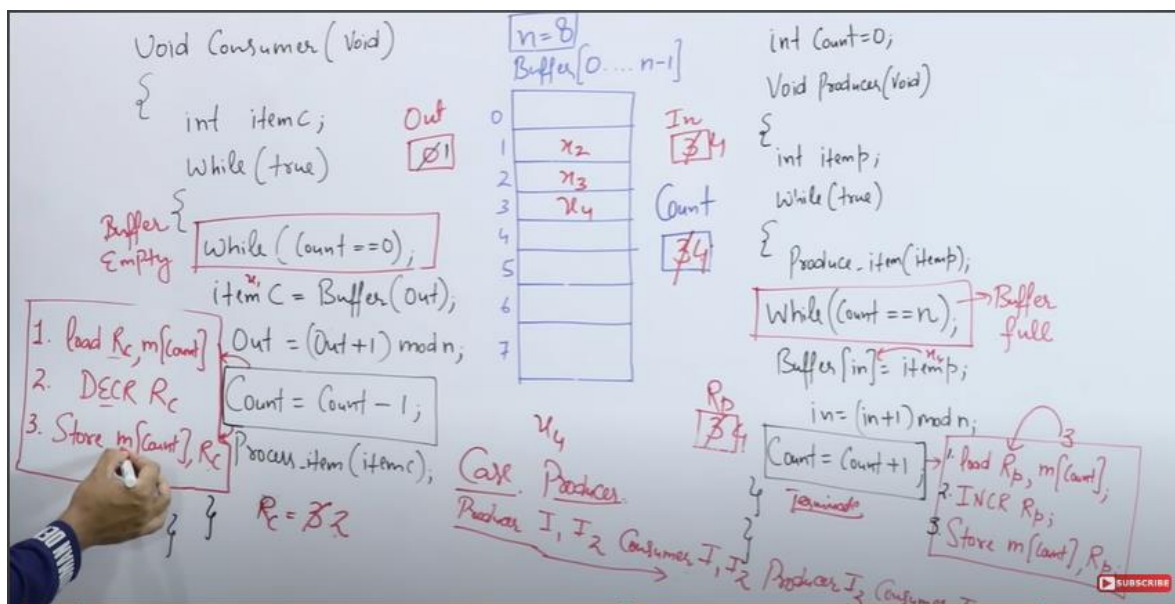 Void Consumer(Void)
{
int itemc;
While(true)
{
Buffer Empty
While(Count==0);
x1
itemC = Buffer(Out);
Out = (Out+1) mod n;
Count = Count-1;
Process_item(itemc);
}
}
1. load Rc, m[Count]
2. DECR Rc
3. Store m[Count], Rc
Rc = 3 2
Out
0 1
n=8
Buffer[0....n-1]
0
1 x2
2 x3
3 x4
4
5
6
7
In
3 4
Count
3 4
x4
Case Producer
Producer I1 I2 Consumer I1 I2 Producer I2 Consumer I
int Count=0;
Void Producer(Void)
{
int itemp;
While(true)
{
Produce_item(itemp);
While(Count==n);
Buffer full
x4
Buffer[in]=itemp;
in=(in+1)mod n;
Count=Count+1;
Terminate
}
}
Rp
3 4
3
1. load Rp, m[Count];
2. INCR Rp;
3. Store m[Count], Rp;
SUBSCRIBE